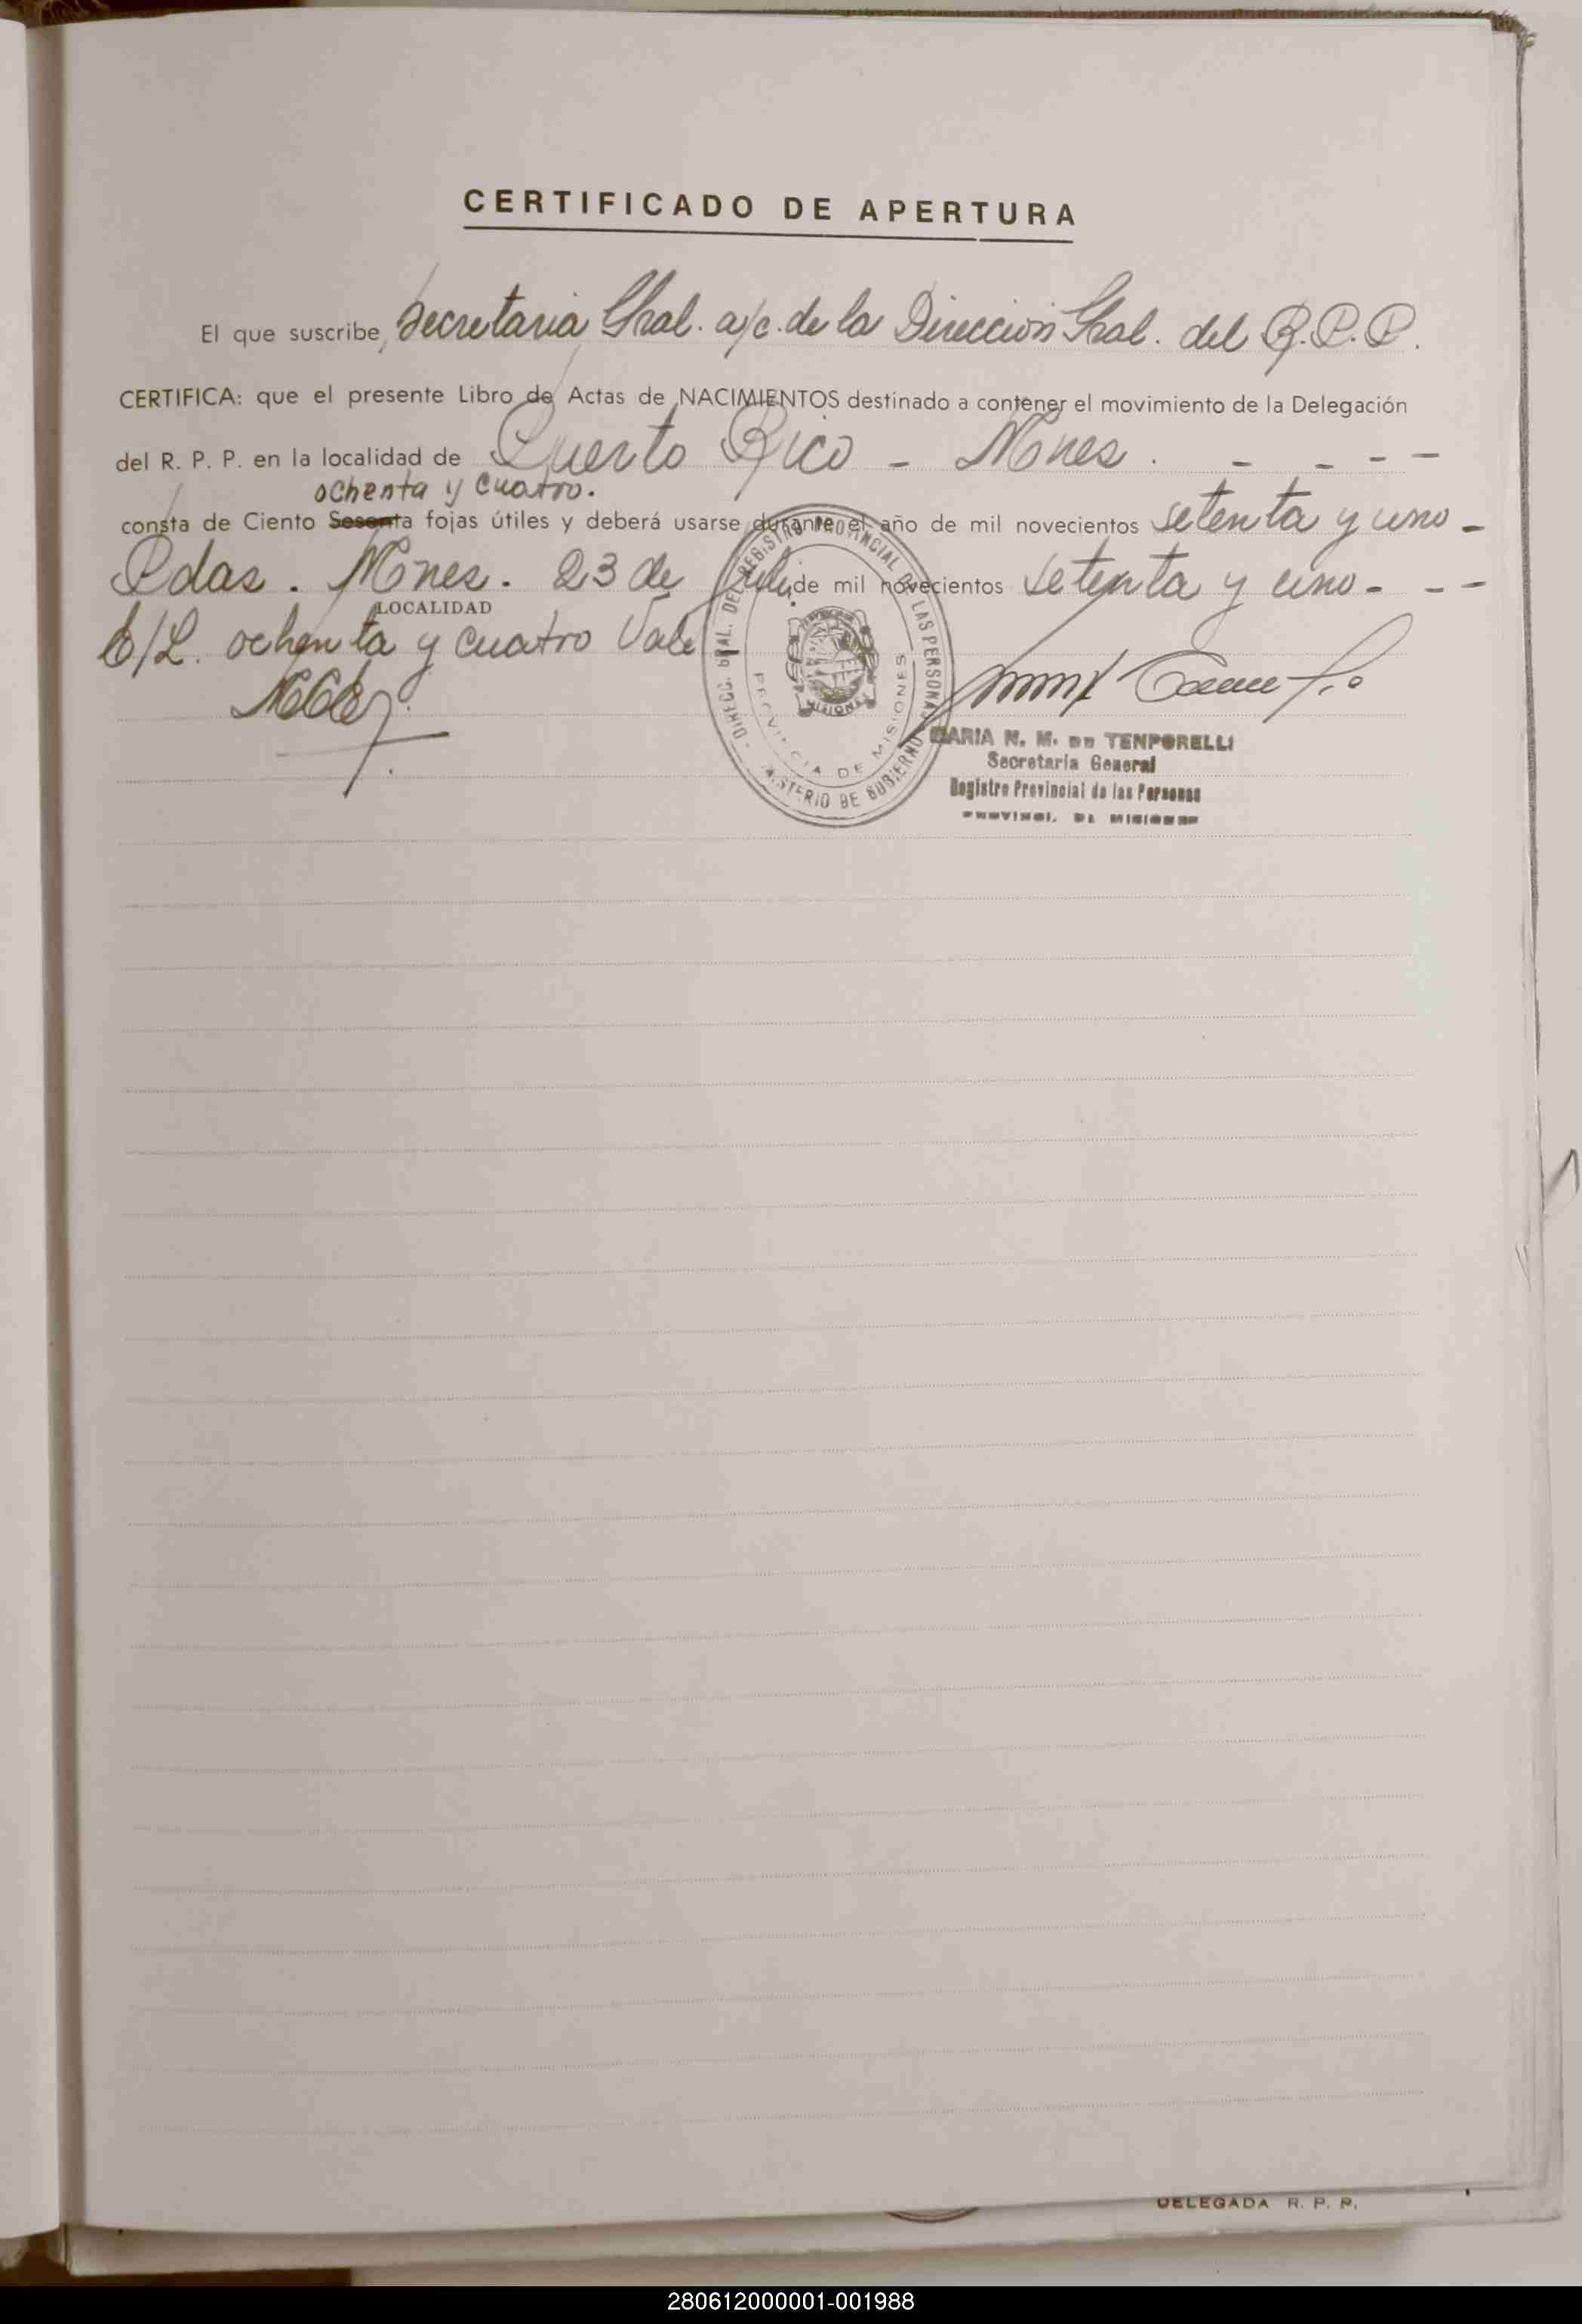 CERTIFICADO DE APERTURA
El que suscribe, Secretaria Gral. a/c. de la Dirección Gral. del R.P.P.
CERTIFICA: que el presente Libro de Actas de NACIMIENTOS destinado a contener el movimiento de la Delegación
del R. P. P. en la localidad de Puerto Rico - Mnes. - - - -
ochenta y cuatro.
consta de Ciento Sesenta fojas útiles y deberá usarse durante el año de mil novecientos setenta y uno -
Pdas. Mnes. 23 de Julio de mil novecientos setenta y uno - - -
LOCALIDAD
E/L. ochenta y cuatro Vale
DIRECC. GRAL. DEL REGISTRO PROVINCIAL DE LAS PERSONAS
MINISTERIO DE GOBIERNO
PROVINCIA DE MISIONES
MISIONES
MARIA N. M. DE TENPORELLI
Secretaria General
Registro Provincial de las Personas
PROVINCI. DE MISIONES
DELEGADA R. P. P.
280612000001-001988